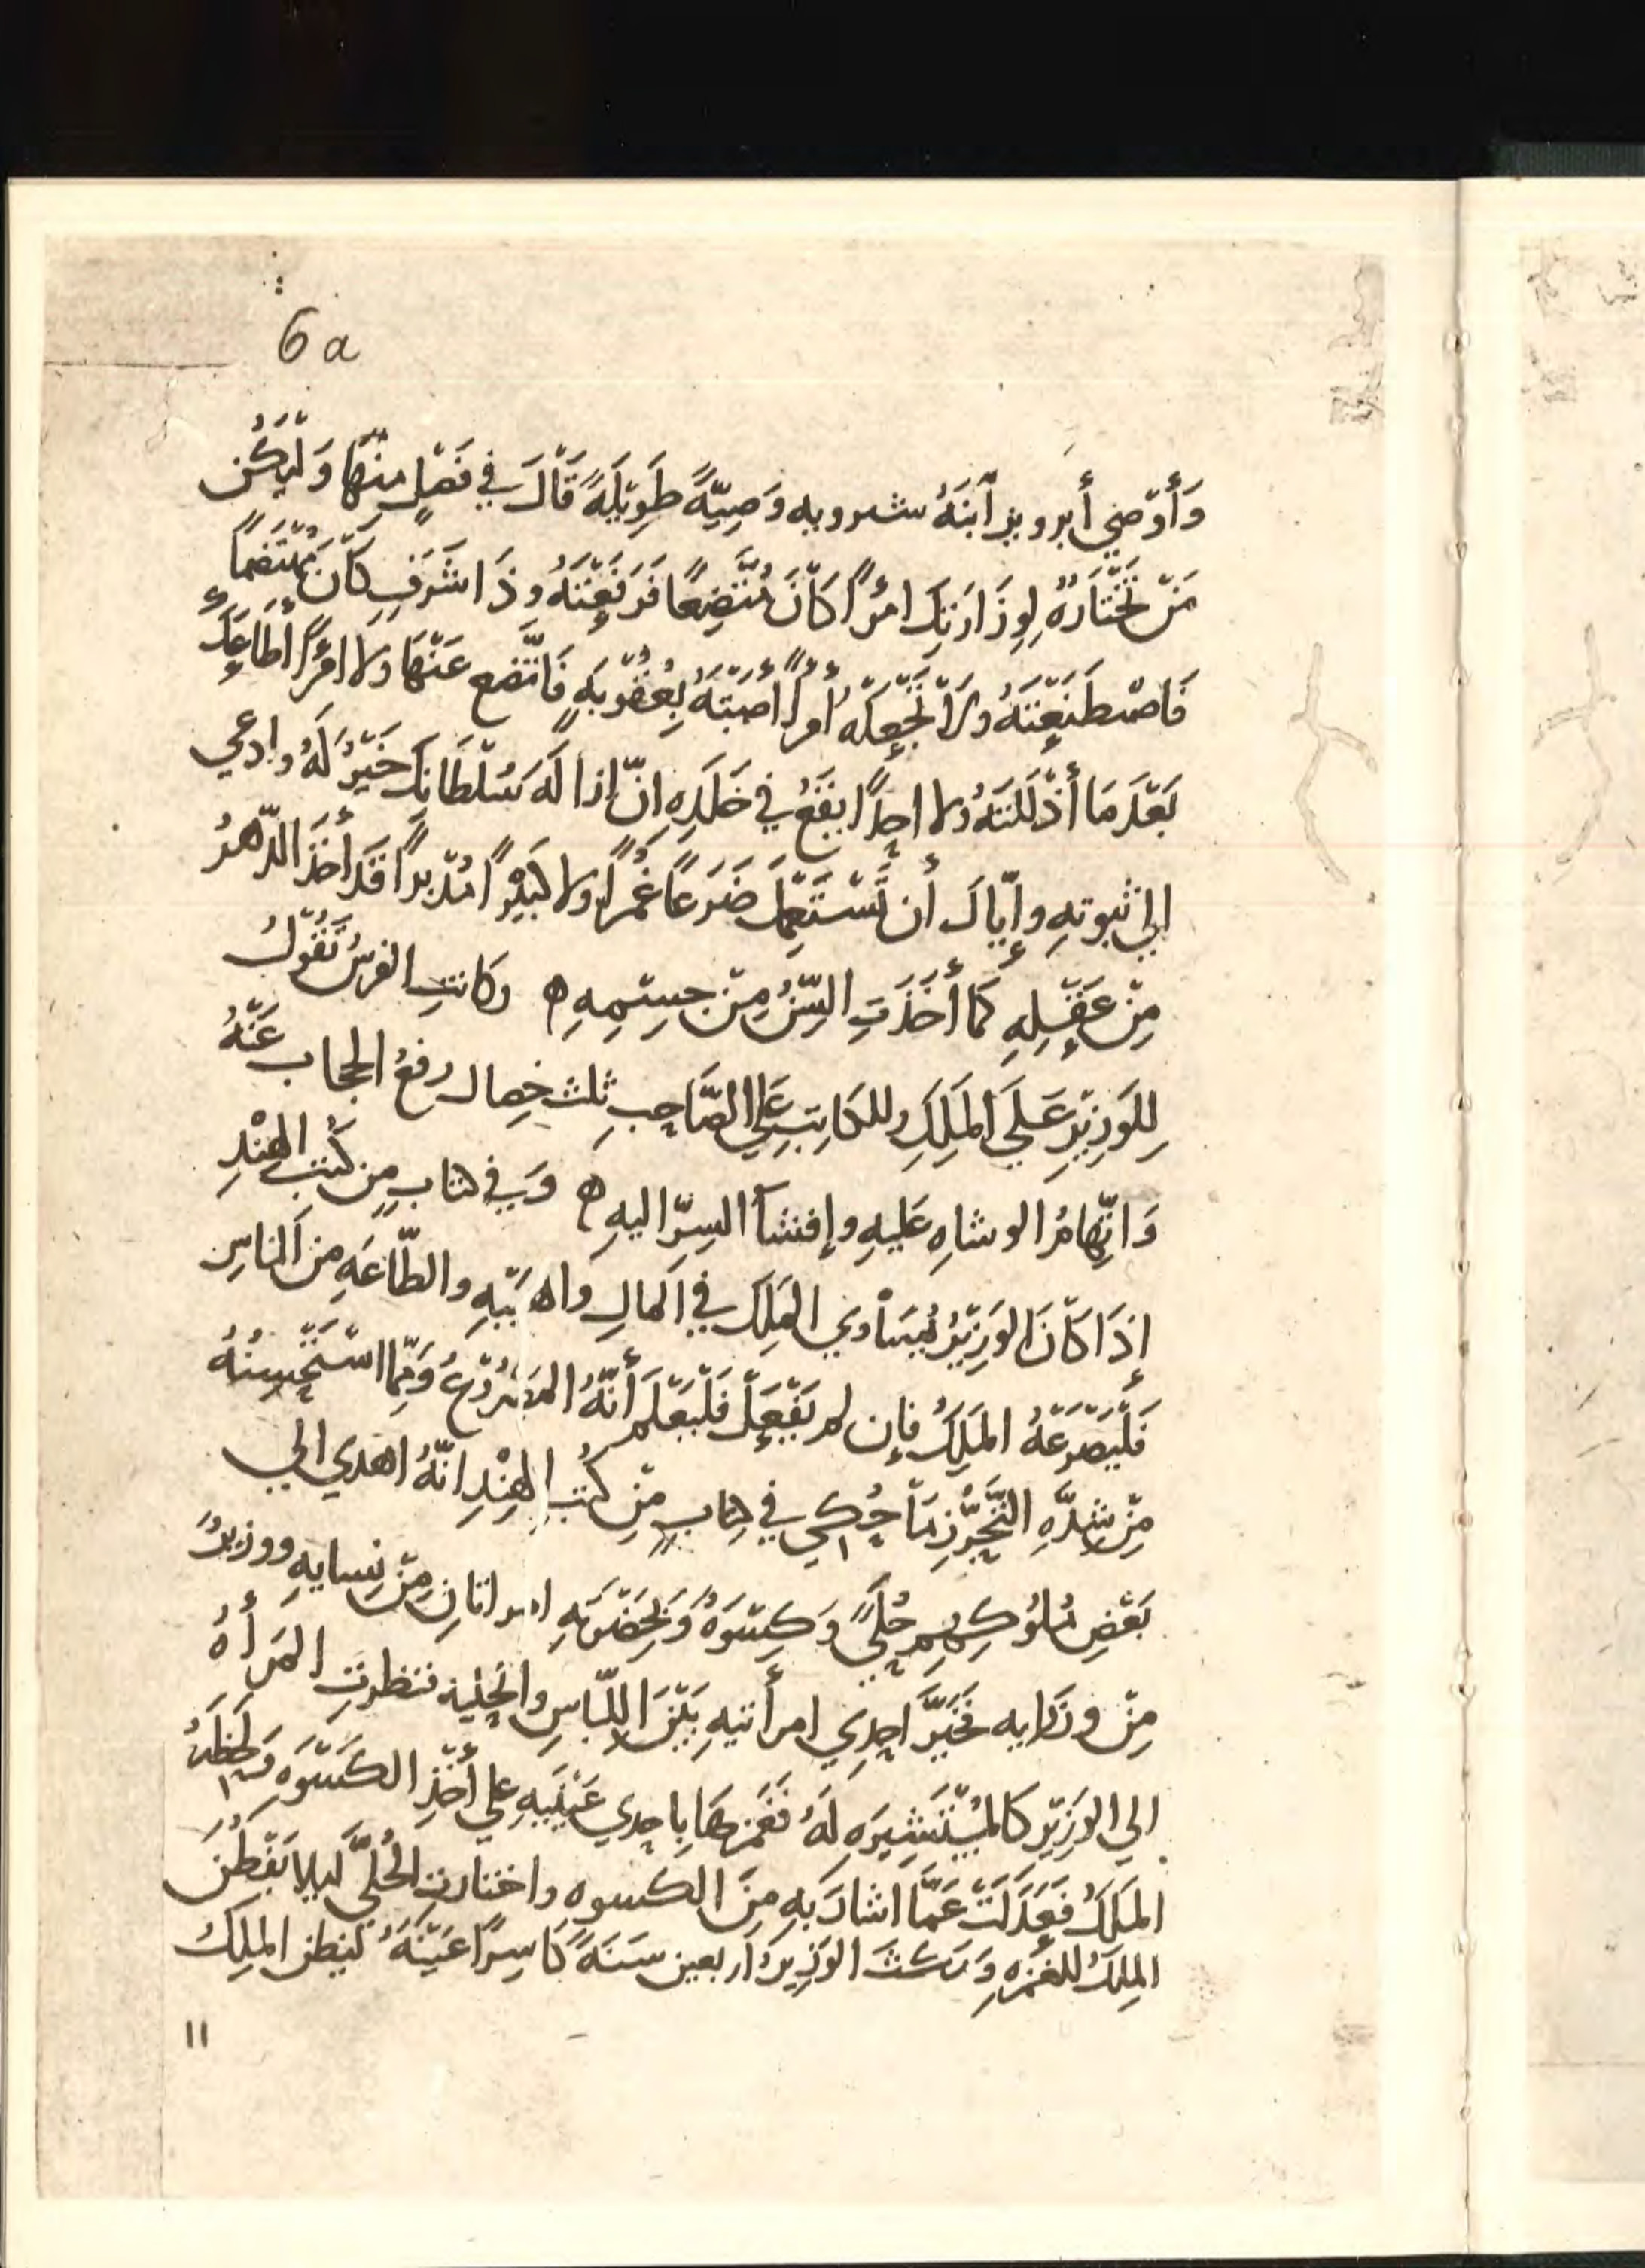 6a
وَأَوْصَي أبرويز ٱبنَهُ شيرويه وَصِيَّةً طَوِيْلَةً قَالَ في فَصْلٍ مِنْهَا وَلْيَكُن
مَنْ تَخْتَارُهُ لِوِزَارَتِكَ امرًا كَانَ مُتَّضِعًا فَرَفَعْتَهُ وذَا شَرَفٍ كَانَ مُهْتَضَمًا
فَاصْطَنَعْتَهُ ولَا تَجْعَلْهُ أمرًا أَصَبْتَهُ بِعُقُوْبَةٍ فَاتَّضَع عَنْهَا ولا امرًا أطَاعَكَ
بَعْدَ مَا أَذْلَلتَهُ ولا احدًا يَقَعُ في خَلَدِهِ انّ إزالَه سُلْطَانِكَ خَيْرٌ لَهُ وادعي
إلي ثبوتهِ وإيّاكَ أن تَسْتَعْمِلَ ضَرَعًا غُمرًا ولا كَبِيْرًا مُدْبِرًا قَد أخَذَ الدّهرُ
مِنْ عَقْلِهِ كَمَا أَخَذَتِ السِّنُ مِنْ جِسْمِهِ ه وكَانتِ الفرسُ تَقُوْلُ
لِلوَزِيْرِ عَلَي المَلِكِ وللكَاتِبِ عَلي الصَّاحِبِ ثلث خِصال رفعُ الحجاب عَنْهُ
وَاتّهامُ الوشاهِ عَليهِ وإفشآ السِرّ اليهِ ه وَفِي كتابٍ مِن كُتبِ الهِنْدِ
إذَا كَانَ الوَزِيْرُ يُسَاوي المَلِكَ في المالِ والهَيْبهِ والطّاعَهِ مِنَ الناسِ
فَلْيَصْرَعْهُ المَلِكُ فإن لم يَفْعَلْ فَلْيَعْلَم أَنّهُ المَصْرُوْعُ وَمِمّا اسْتَحْسِنُهُ
مِنْ شِدَّهِ التَّحَرُّزِ مَا حُكِي في كِتابٍ مِنْ كُتبِ الهِنْدِ انّهُ اهدي الي
بَعْضِ مُلوُكِهِم حُلِيٌّ وَكِسْوَهٌ وَبِحَضْرَتهِ امراتانِ مِنْ نِسايهِ ووزيرٌ
مِنْ وزَرايه فخَيَّرَ احِدي امرأتيهِ بَيْنَ اللّباسِ والحِلية فنظرتِ المَرأهُ
الي الوَزِيْرِ كالمُسْتَشِيرَهِ لَهُ فغَمَزهَا بإحِدي عَيْنَيْهِ علي أَخْذِ الكَسْوَهِ وَلحَظَهُ
المَلكُ فعَدَلَتْ عَمَّا اشارَ بهِ مِنَ الكسوهِ واختارتِ الحُليَّ ليلا يَفْطُنَ
المِلكُ للغَمْزهِ وَمَكثَ الوَزِيرُ اربعين سَنَهً كَاسِرًا عَيْنَهُ ليظن المَلِكُ
11